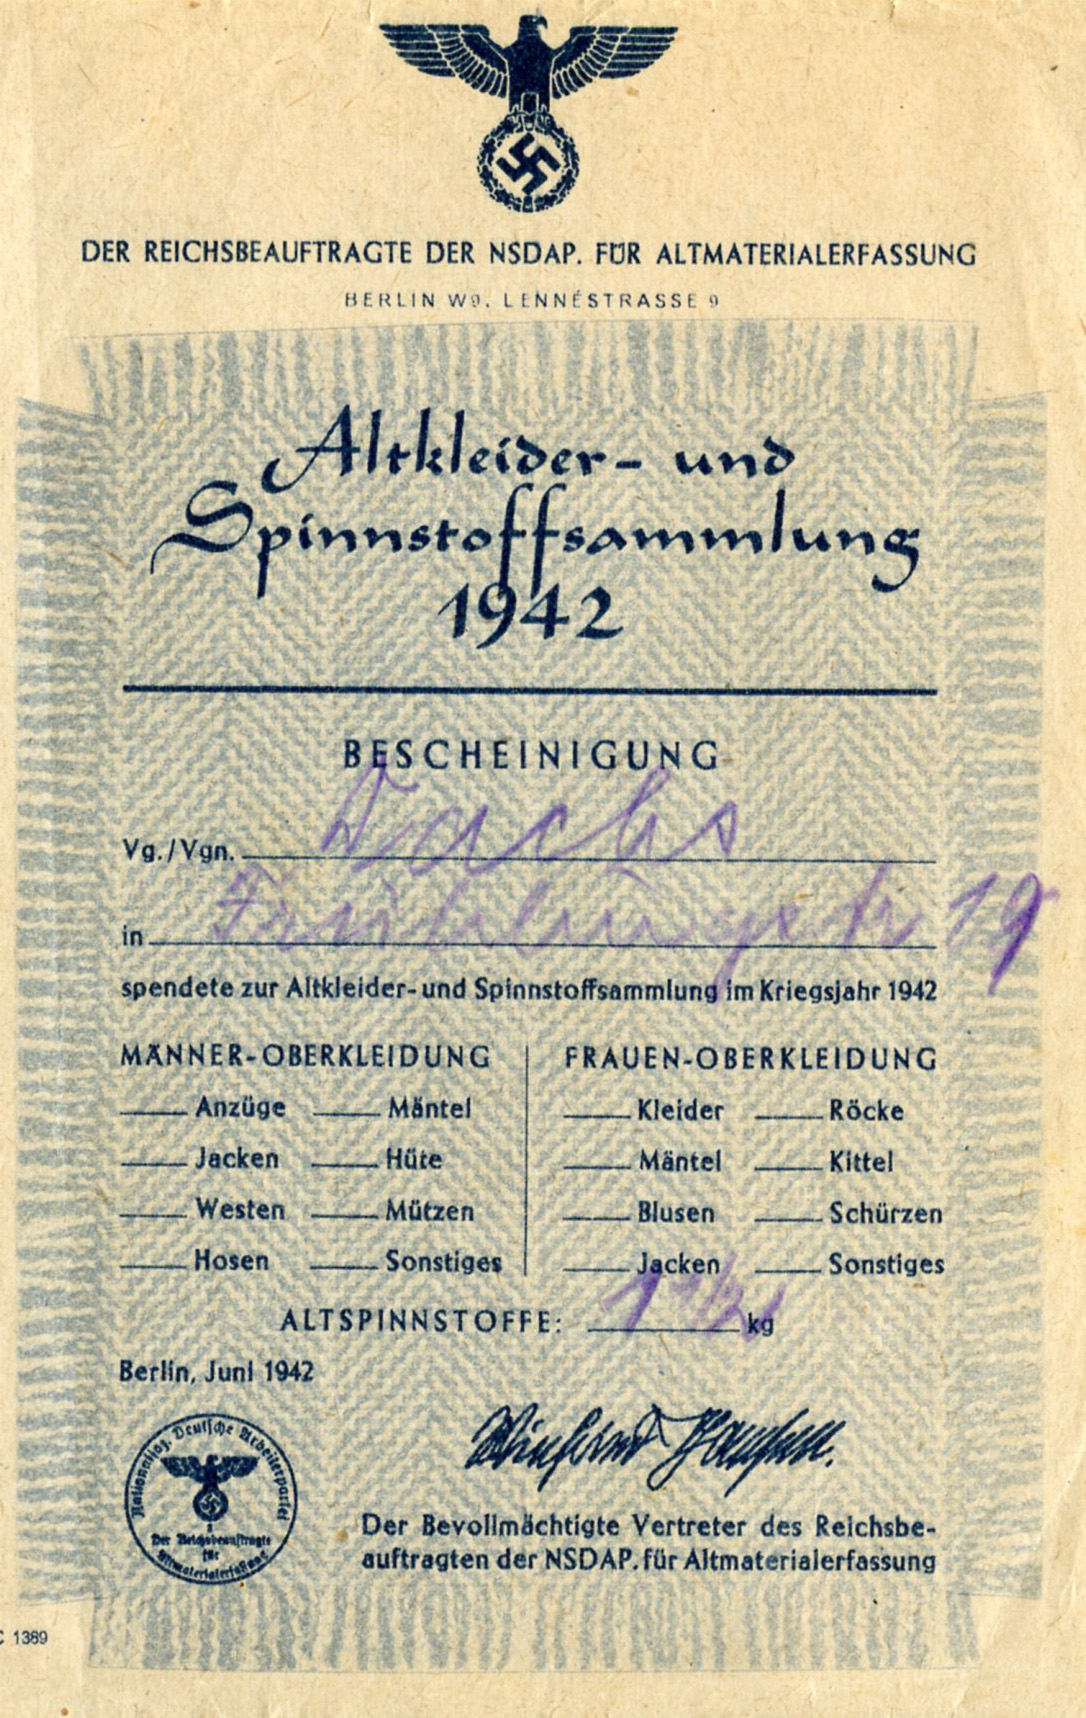 DER REICHSBEAUFTRAGTE DER NSDAP. FÜR ALTMATERIALERFASSUNG
BERLIN W9. LENNÉSTRASSE 9
Altkleider- und
Spinnstoffsammlung
1942
BESCHEINIGUNG
Vg./Vgn. Dachs
in 19
spendete zur Altkleider- und Spinnstoffsammlung im Kriegsjahr 1942
MÄNNER-OBERKLEIDUNG FRAUEN-OBERKLEIDUNG
Anzüge Mäntel Kleider Röcke
Jacken Hüte Mäntel Kittel
Westen Mützen Blusen Schürzen
Hosen Sonstiges Jacken Sonstiges
ALTSPINNSTOFFE: 1 1/2 kg
Berlin, Juni 1942
Nationalsoz. Deutsche Arbeiterpartei
Der Reichsbeauftragte
für
Altmaterialerfassung
Der Bevollmächtigte Vertreter des Reichsbe-
auftragten der NSDAP. für Altmaterialerfassung
C 1389